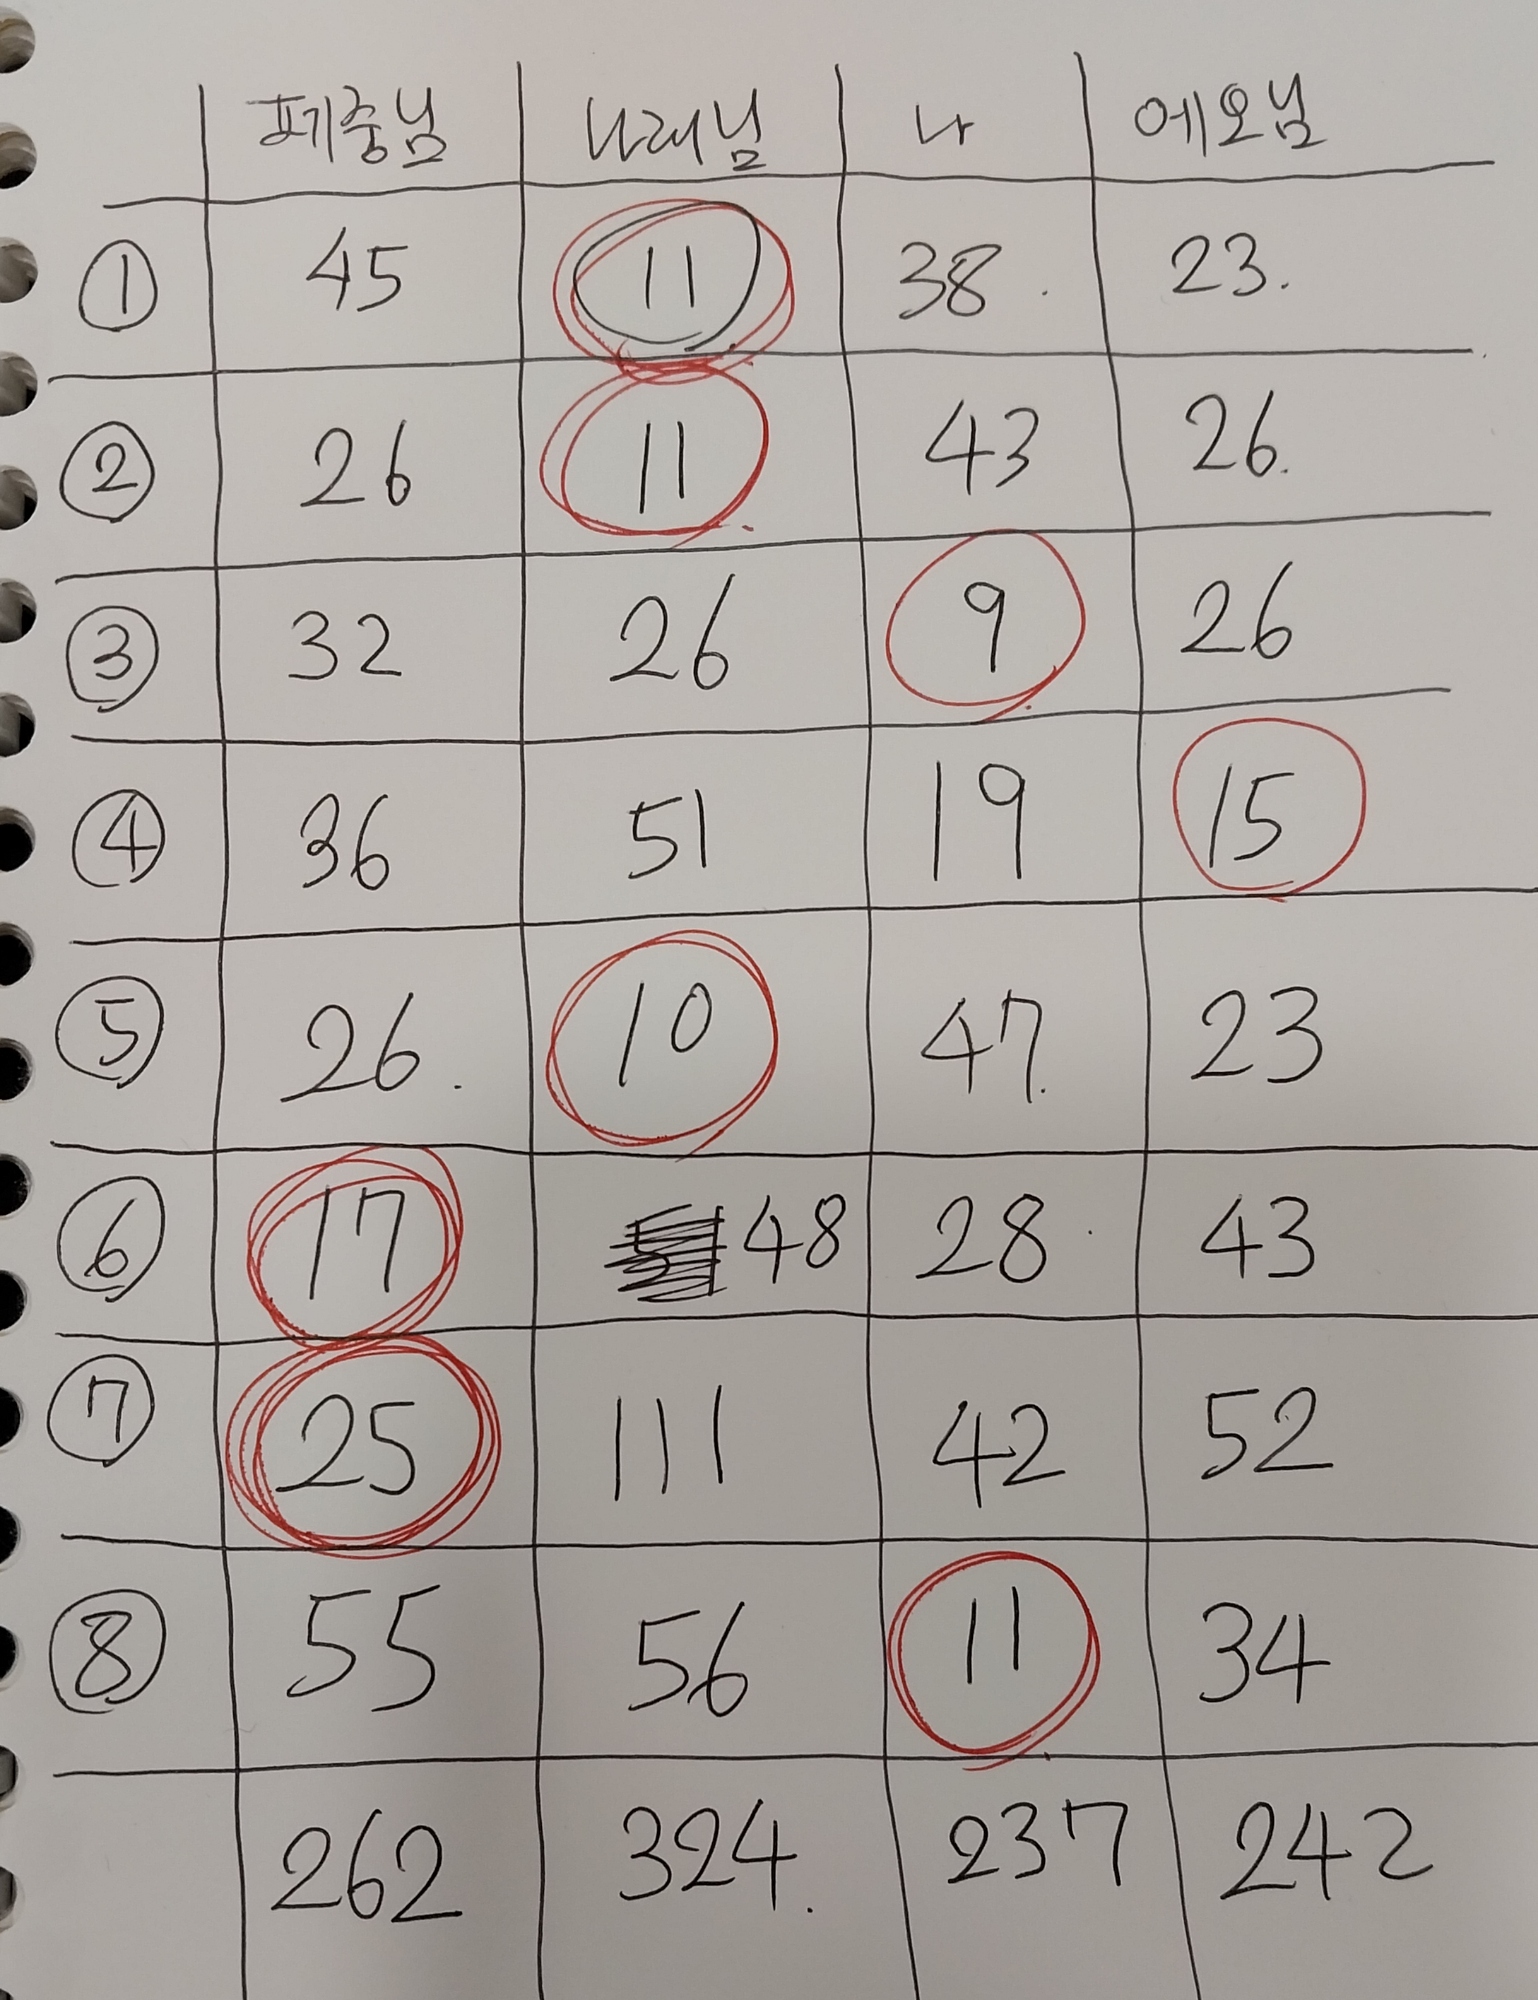 페중님 나래님 나 에오님
① 45 11 38 23.
② 26 11 43 26.
③ 32 26 9 26
④ 36 51 19 15
⑤ 26. 10 47. 23
⑥ 17 48 28 43
⑦ 25 111 42 52
⑧ 55 56 11 34
262 324. 237 242